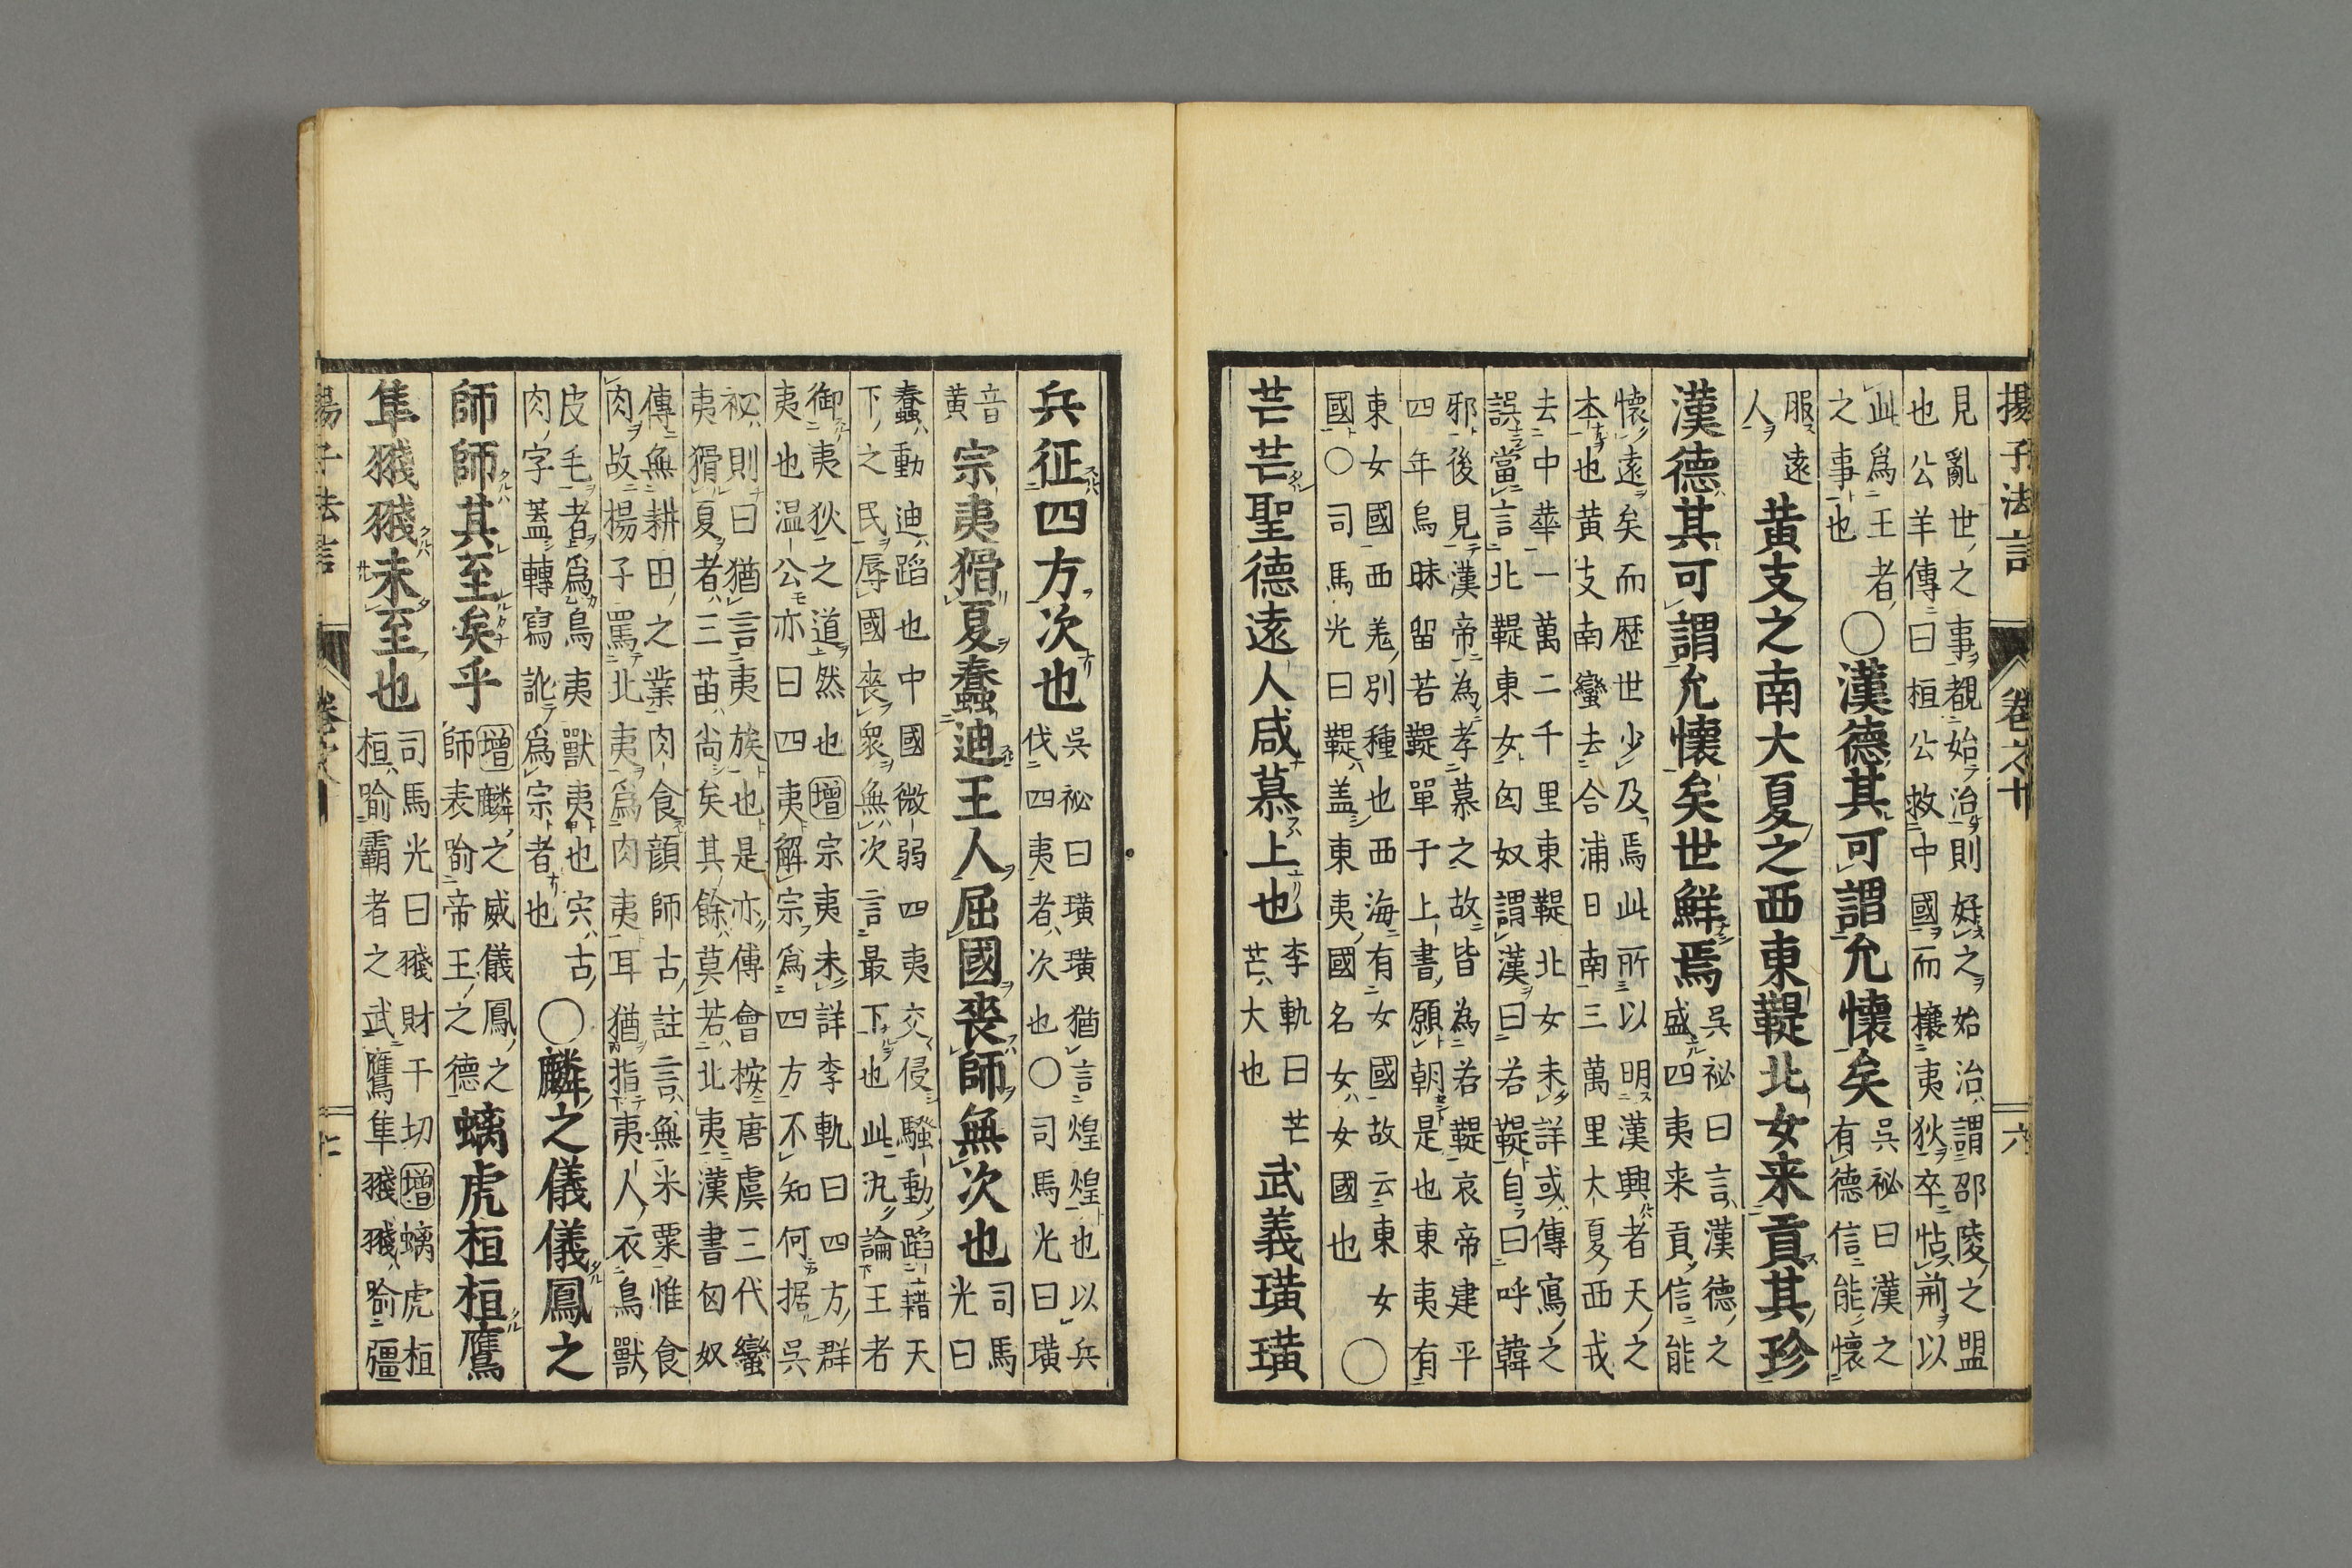 揚子法言 卷之十 六
見亂世之事觀始治則好之始治謂邵陵之盟
也公羊傳曰桓公救中國而攘夷狄卒怗荊以
此爲王者
之事也
○漢德其可謂允懷矣
吳祕曰漢之
有德信能懷
服遠
人
黄支之南大夏之西東鞮北女来貢其珍
漢德其可謂允懷矣世鮮焉
吳祕曰言漢德之
盛四夷来貢信能
懷遠矣而歷世少及焉此所以明漢興者天之
本也黄支南蠻去合浦日南三萬里大夏西戎
去中華一萬二千里東鞮北女未詳或傳寫之
誤當言北鞮東女匈奴謂漢曰若鞮自曰呼韓
邪後見漢帝為孝慕之故皆為若鞮哀帝建平
四年烏昧留若鞮單于上書願朝是也東夷有
東女國西羌別種也西海有女國故云東女
國○司馬光曰鞮盖東夷國名女女國也
○
芒芒聖德遠人咸慕上也
李軌曰芒
芒大也
武義璜璜
兵征四方次也
吳祕曰璜璜猶言煌煌也以兵
伐四夷者次也○司馬光曰璜
音
黄
宗夷猾夏蠢迪王人屈國喪師無次也
司馬
光曰
蠢動迪蹈也中國微弱四夷交侵騷動蹈藉天
下之民辱國喪衆無次言最下也此汎論王者
御夷狄之道然也增宗夷未詳李軌曰四方群
夷也温公亦曰四夷解宗爲四方不知何据吳
祕則曰猶言夷族也是亦傅會按唐虞三代蠻
夷猾夏者三苗尚矣其餘莫若北夷漢書匈奴
傳無耕田之業肉食顔師古註言無米粟惟食
肉故揚子罵北夷爲肉夷耳猶指夷人衣鳥獸
皮毛者爲鳥夷獸夷也宍古
肉字蓋轉寫訛爲宗者也
○麟之儀儀鳳之
師師其至矣乎
增麟之威儀鳳之
師表喻帝王之德
螭虎桓桓鷹
隼䎒䎒未至也
司馬光曰䎒財干切增螭虎桓
桓喻霸者之武鷹隼䎒䎒喻彊